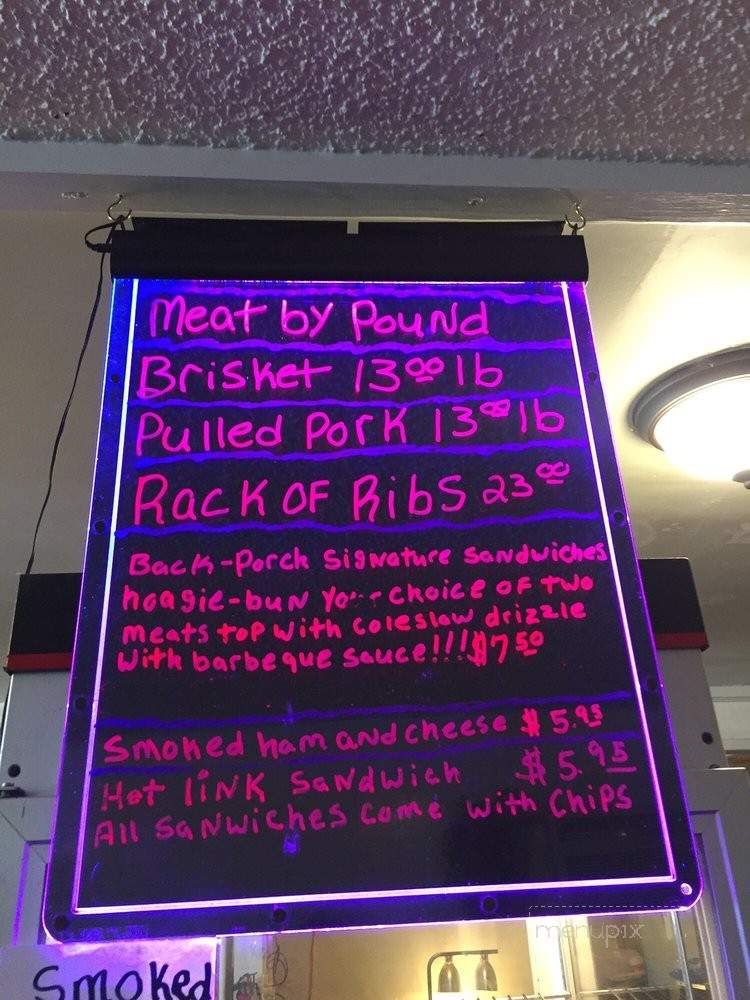 Meat by Pound
Brisket 13.00 lb
Pulled Pork 13.00 lb
Rack OF Ribs 23.00
Back-Porch Signature Sandwiches
hoagie-buN Your choice OF two
meats top with coleslaw drizzle
with barbeque sauce!!! $7.50
Smoked ham and cheese $5.95
Hot liNK SaNdwich $5.95
All SaNwiches come with Chips
menupix
Smoked